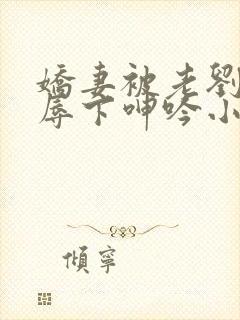 嬌妻被老劉
辱下呻吟小
傾寧